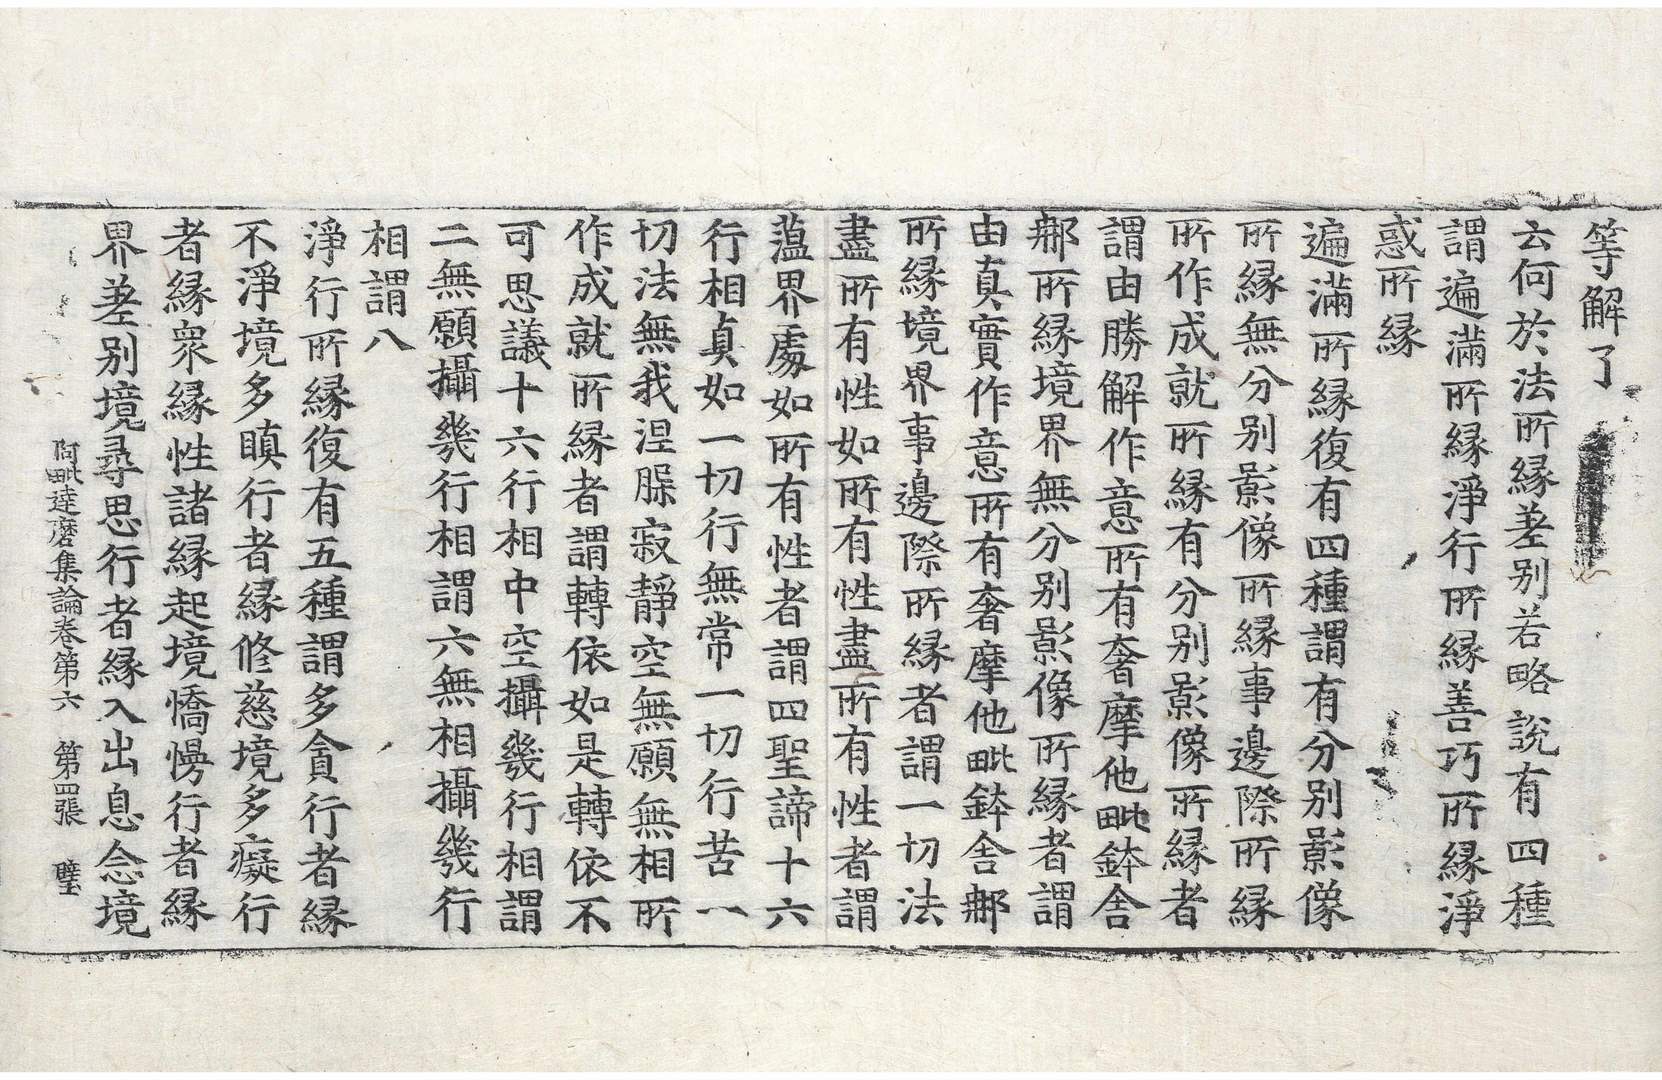 等解了
云何於法所緣差别若略說有四種
謂遍滿所緣淨行所緣善巧所緣淨
惑所緣
遍滿所緣復有四種謂有分别影像
所緣無分别影像所緣事邊際所緣
所作成就所緣有分别影像所緣者
謂由勝解作意所有奢摩他毗鉢舍
那所緣境界無分别影像所緣者謂
由真實作意所有奢摩他毗鉢舍那
所緣境界事邊際所緣者謂一切法
盡所有性如所有性盡所有性者謂
蘊界處如所有性者謂四聖諦十六
行相真如一切行無常一切行苦一
切法無我涅槃寂靜空無願無相所
作成就所緣者謂轉依如是轉依不
可思議十六行相中空攝幾行相謂
二無願攝幾行相謂六無相攝幾行
相謂八
淨行所緣復有五種謂多貪行者緣
不淨境多瞋行者緣修慈境多癡行
者緣衆緣性諸緣起境憍慢行者緣
界差别境尋思行者緣入出息念境
阿毗達磨集論卷第六 第四張 璧